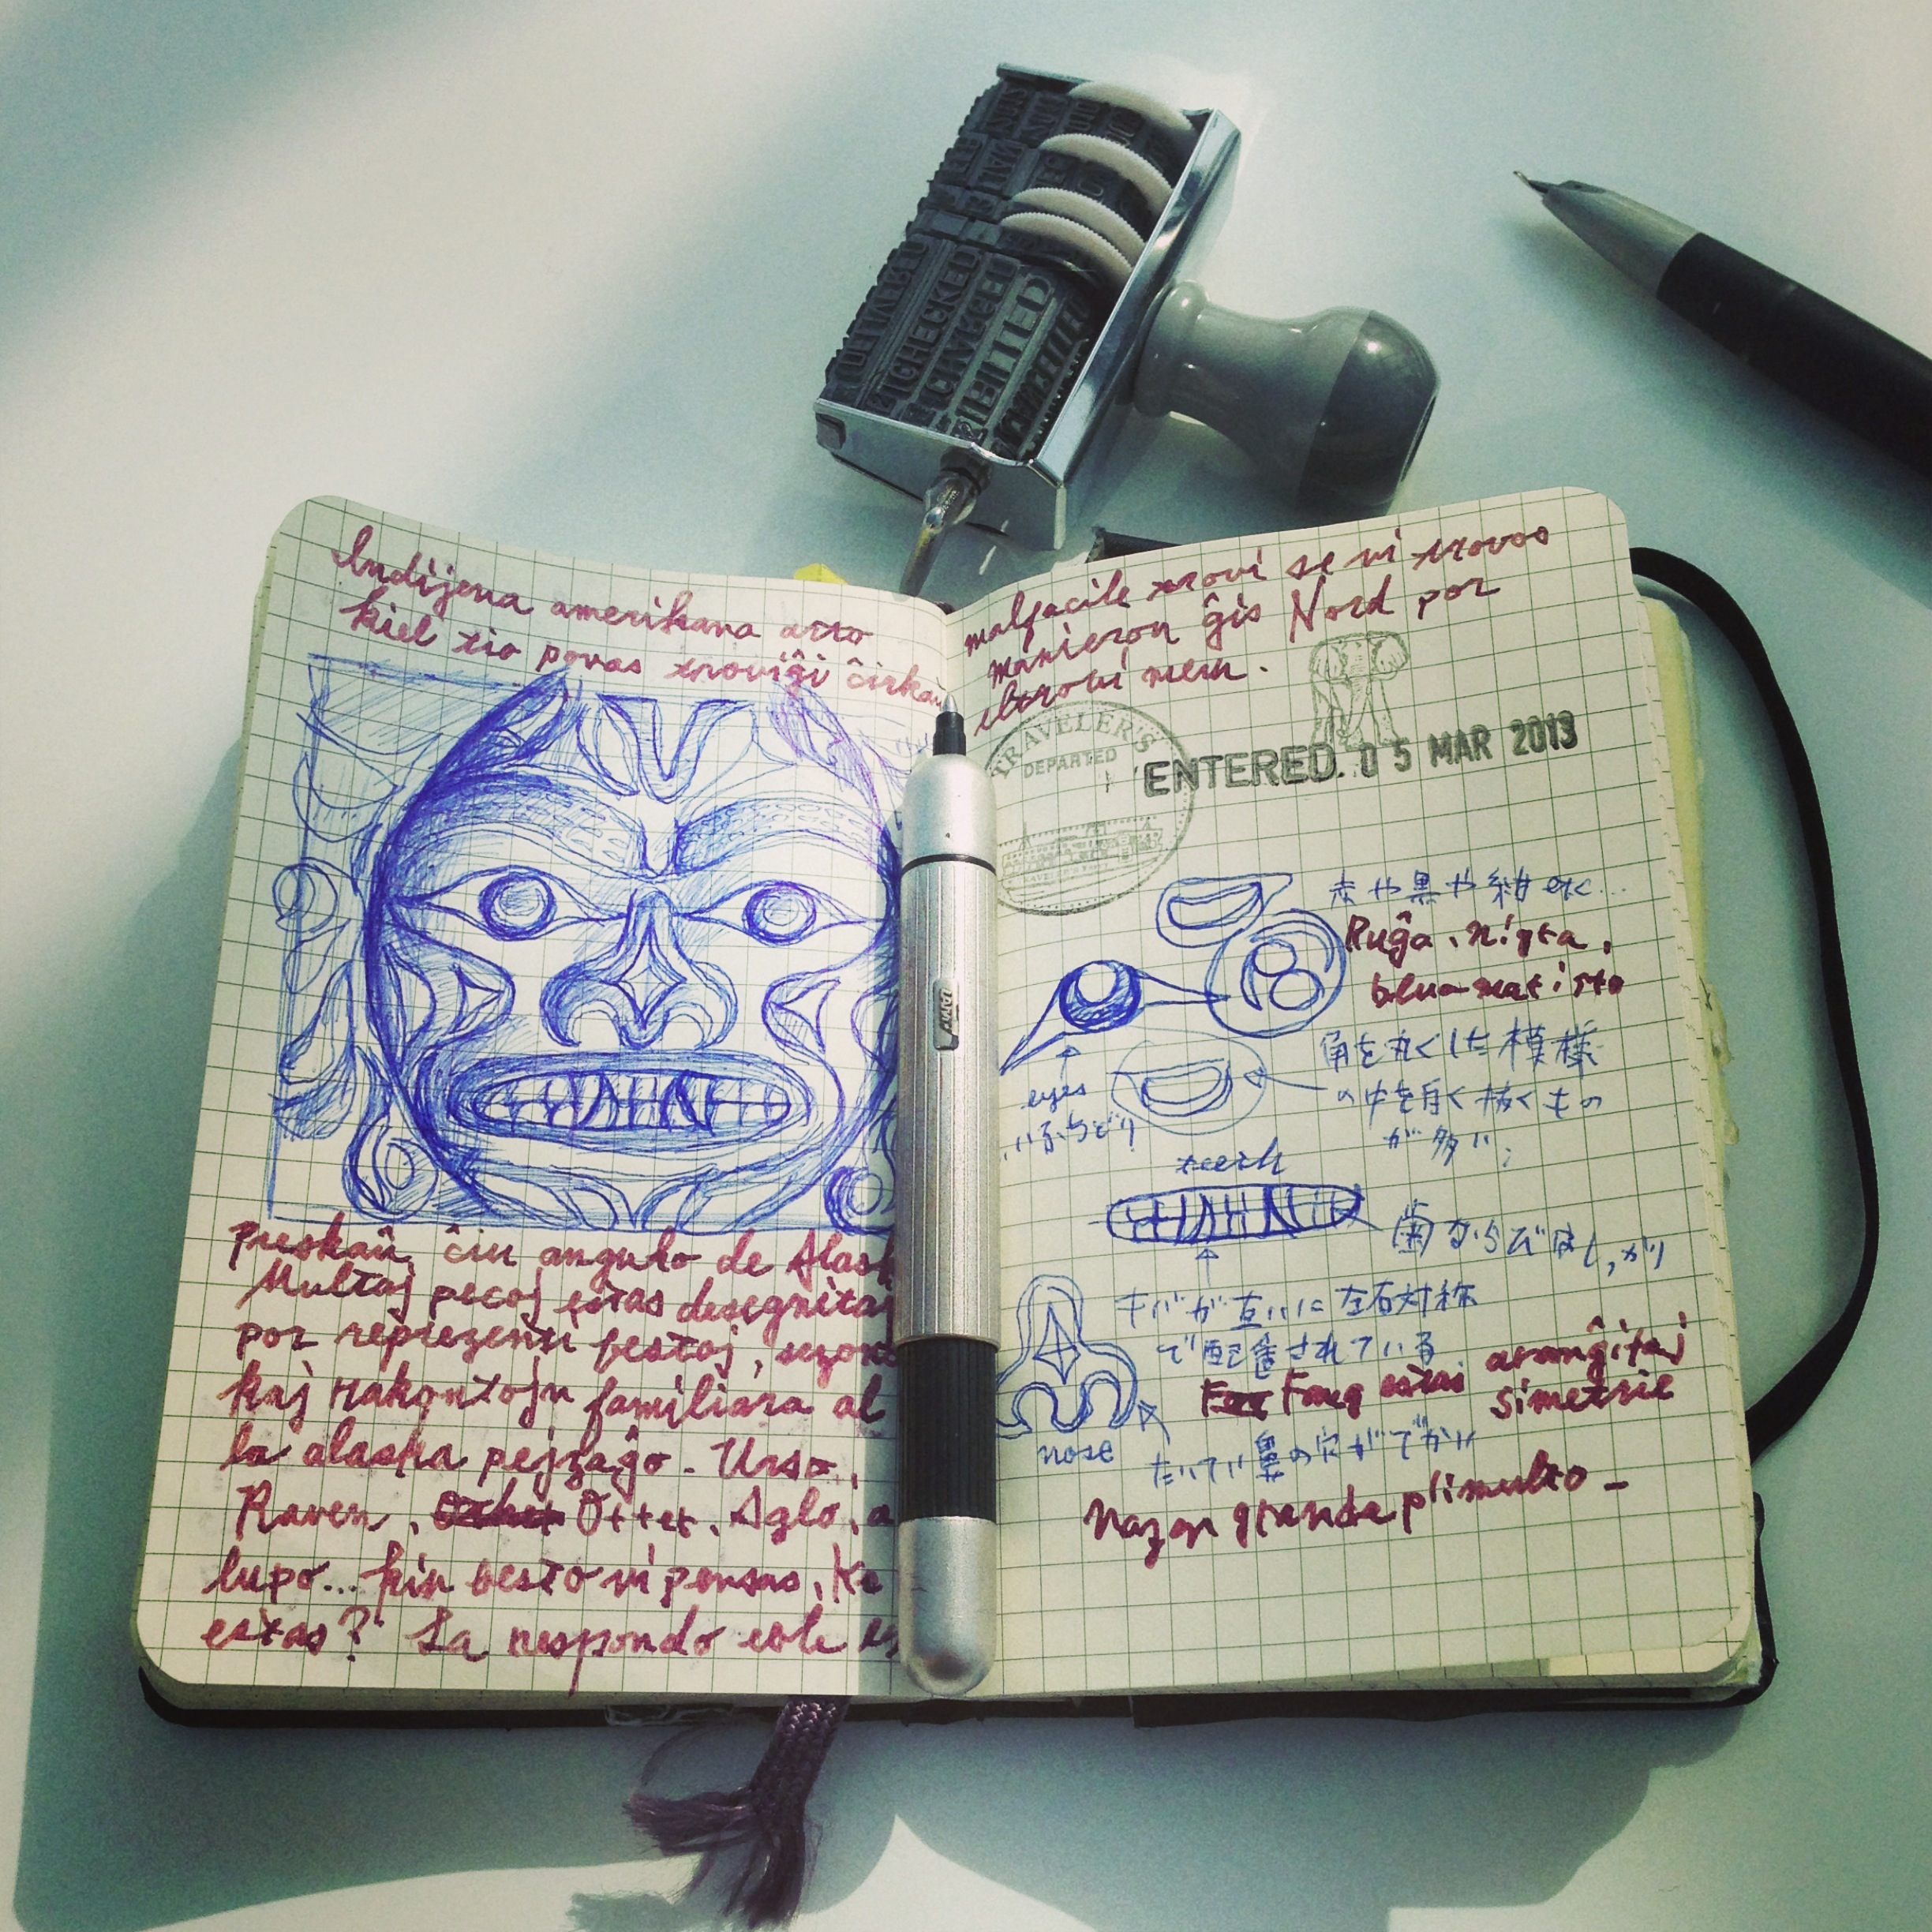 Indijena amerikana arto
kiel tio povas troviĝi ĉirkaŭ
Preskaŭ ĉiu angulo de Alask
Multaj pecoj estas desegnitaj
por reprezenti bestoj, sezono
kaj rakontojn familiara al
la alaska pejzaĝo. Urso,
Raven, Otter, Aglo, a
lupo... kiu besto vi pensas, ke
estas? La respondo eble es
malfacile trovi se vi trovos
manieron ĝis Nord por
eltrovi mem.
TRAVELER'S
DEPARTED
ENTERED. 05 MAR 2013
赤や黒や紺 etc...
Ruĝa, nigra,
blua
角を丸くした模様
の中を白く抜くもの
が多い;
eyes
ふちどり
teeth
歯ならび
キバが互いに左右対称
で配置されている
Fang estas aranĝitaj
simetrie
nose
だいたい鼻の穴がでかい
Nazon granda plimulto -
CHECKED
CANCELLED
LAMY